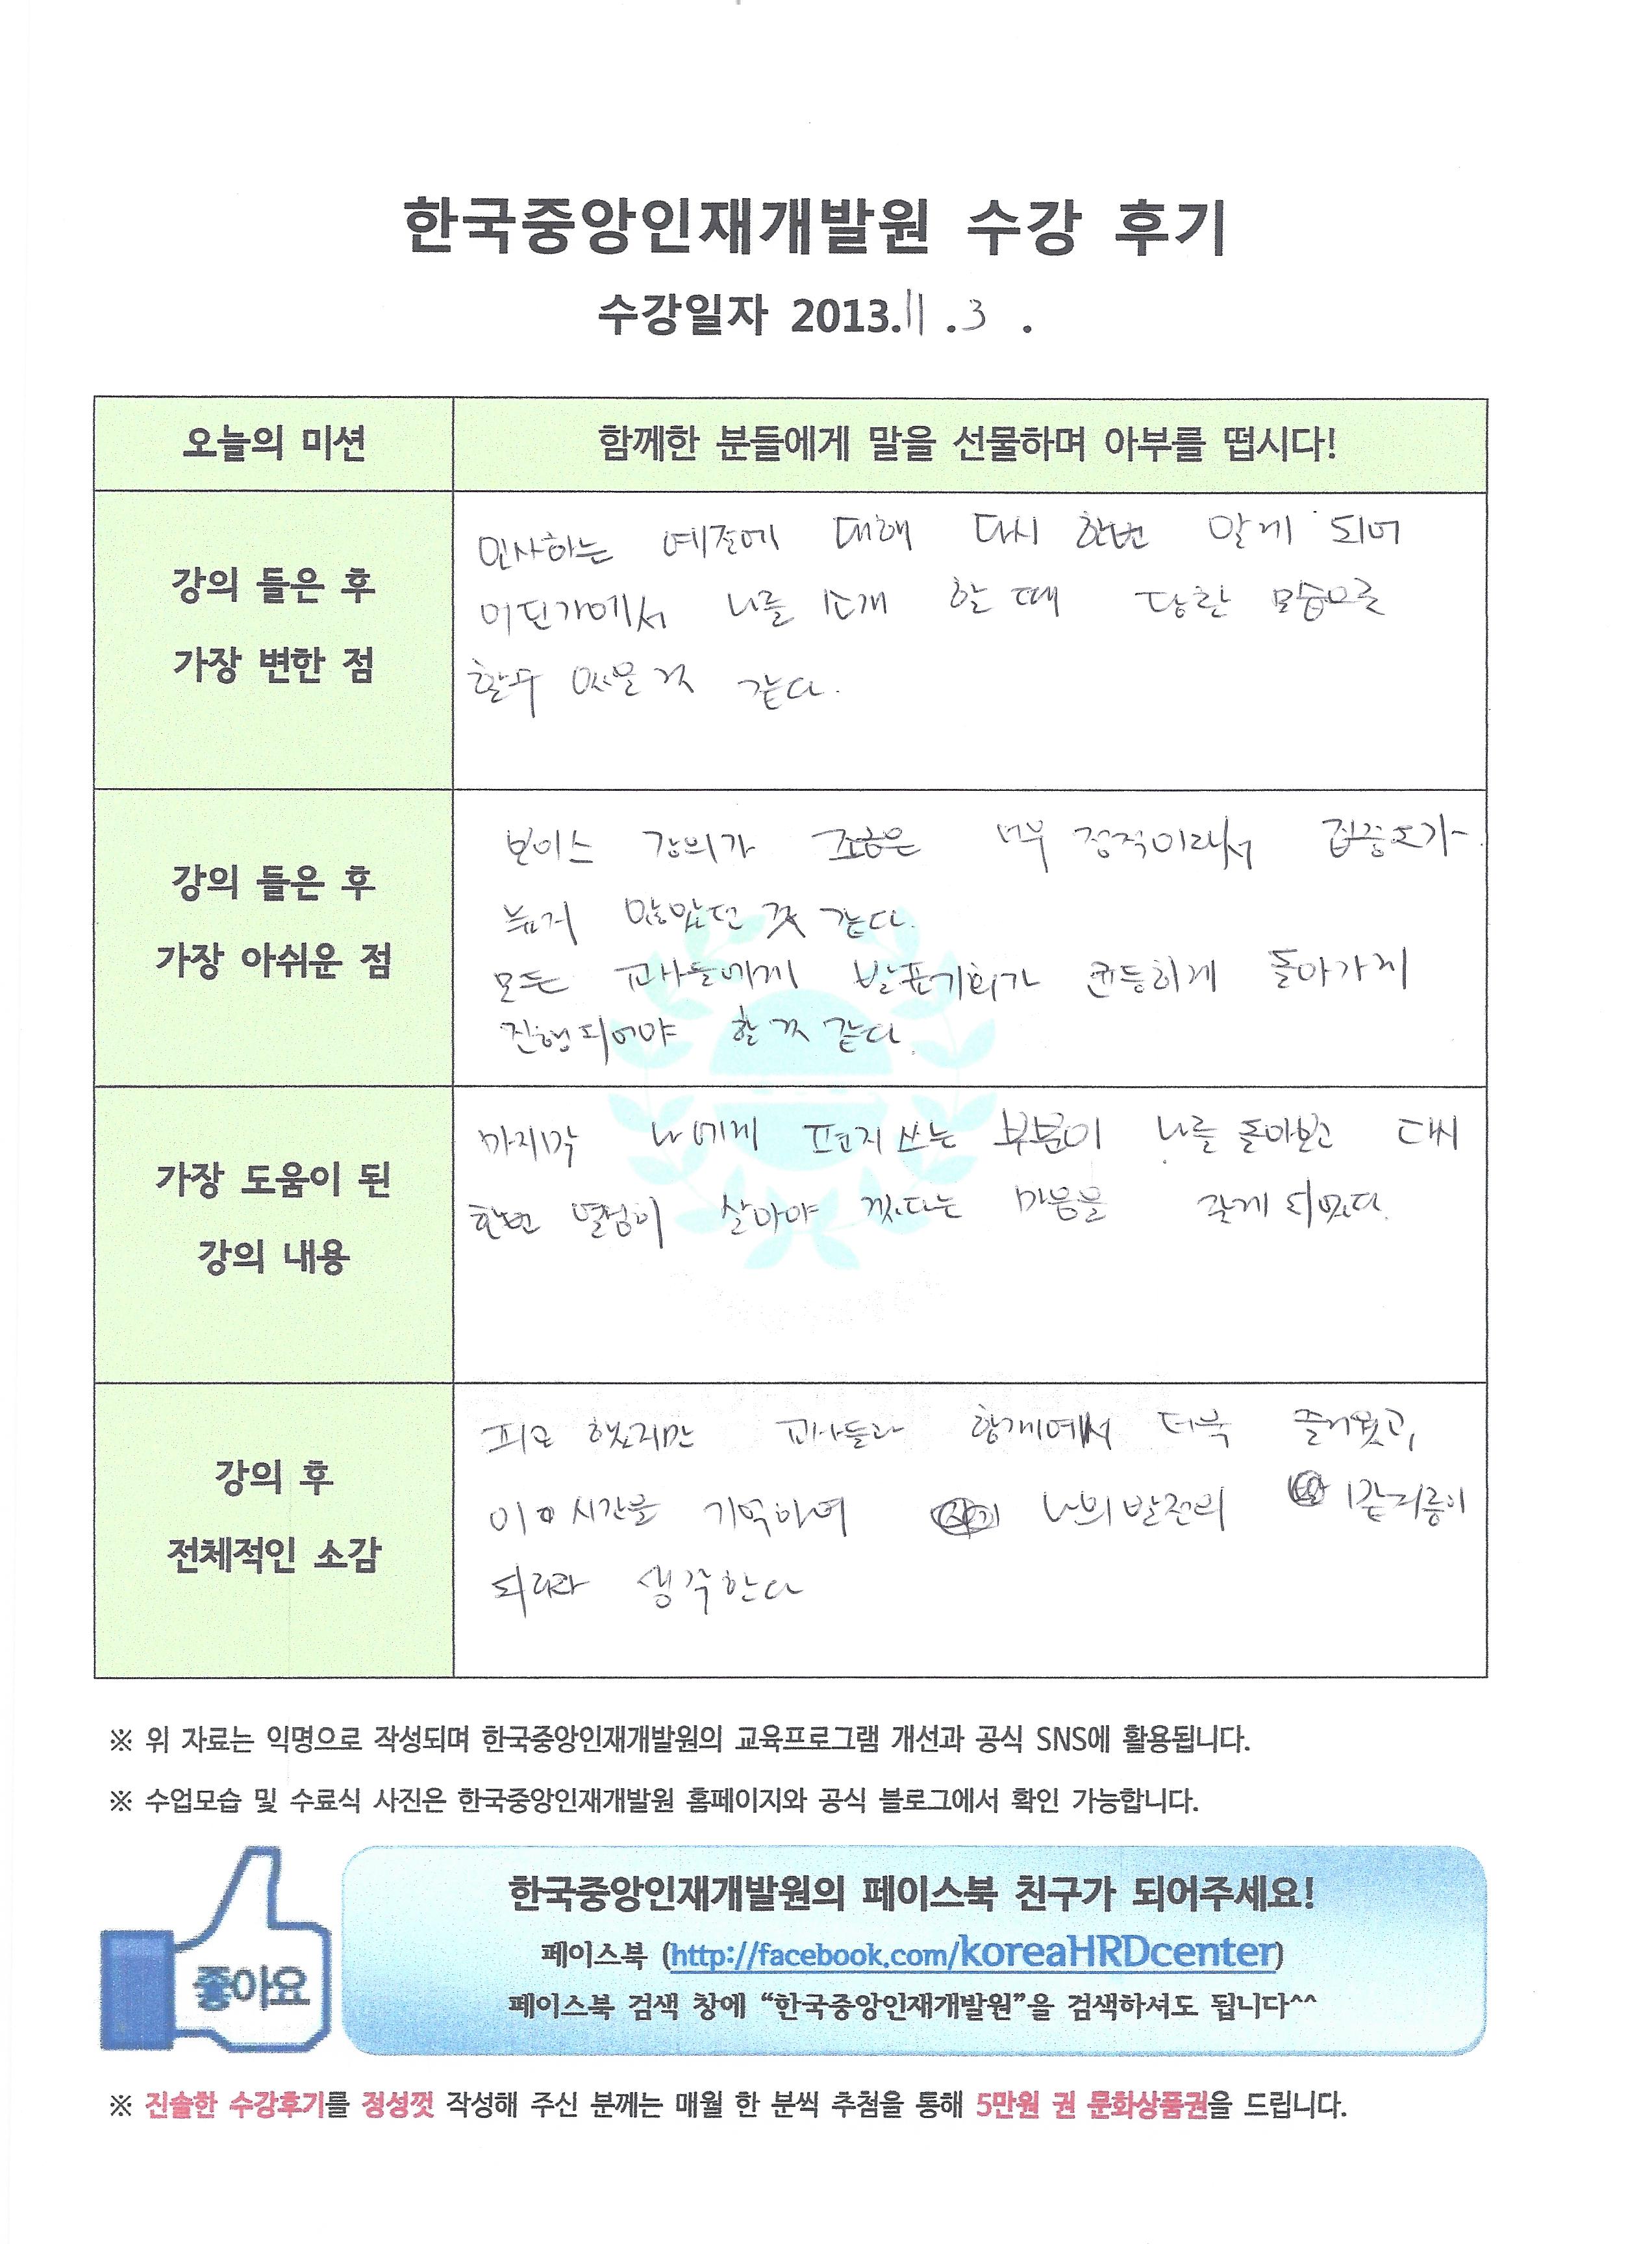 한국중앙인재개발원 수강 후기
수강일자 2013.11.3 .
오늘의 미션
함께한 분들에게 말을 선물하며 아부를 떱시다!
강의 들은 후
가장 변한 점
인사하는 예절에 대해 다시 한번 알게 되어
어딘가에서 나를 소개 할 때 당한 모습으로
할수 있을 것 같다.
강의 들은 후
가장 아쉬운 점
보이스 강의가 조금은 너무 정적이라서 집중도가
높지 않았던 것 같다.
모든 교사들에게 발표기회가 균등하게 돌아가게
진행되어야 할 것 같다.
가장 도움이 된
강의 내용
마지막 나에게 편지 쓰는 부분이 나를 돌아보고 다시
한번 열심히 살아야 겠다는 마음을 갖게 되었다.
강의 후
전체적인 소감
피곤 했지만 교사들과 함께여서 더욱 즐거웠고,
이 시간을 기억하며 나의 발전의
되리라 생각한다
※ 위 자료는 익명으로 작성되며 한국중앙인재개발원의 교육프로그램 개선과 공식 SNS에 활용됩니다.
※ 수업모습 및 수료식 사진은 한국중앙인재개발원 홈페이지와 공식 블로그에서 확인 가능합니다.
좋아요
한국중앙인재개발원의 페이스북 친구가 되어주세요!
페이스북 (http://facebook.com/koreaHRDcenter)
페이스북 검색 창에 “한국중앙인재개발원”을 검색하셔도 됩니다^^
※ 진솔한 수강후기를 정성껏 작성해 주신 분께는 매월 한 분씩 추첨을 통해 5만원 권 문화상품권을 드립니다.